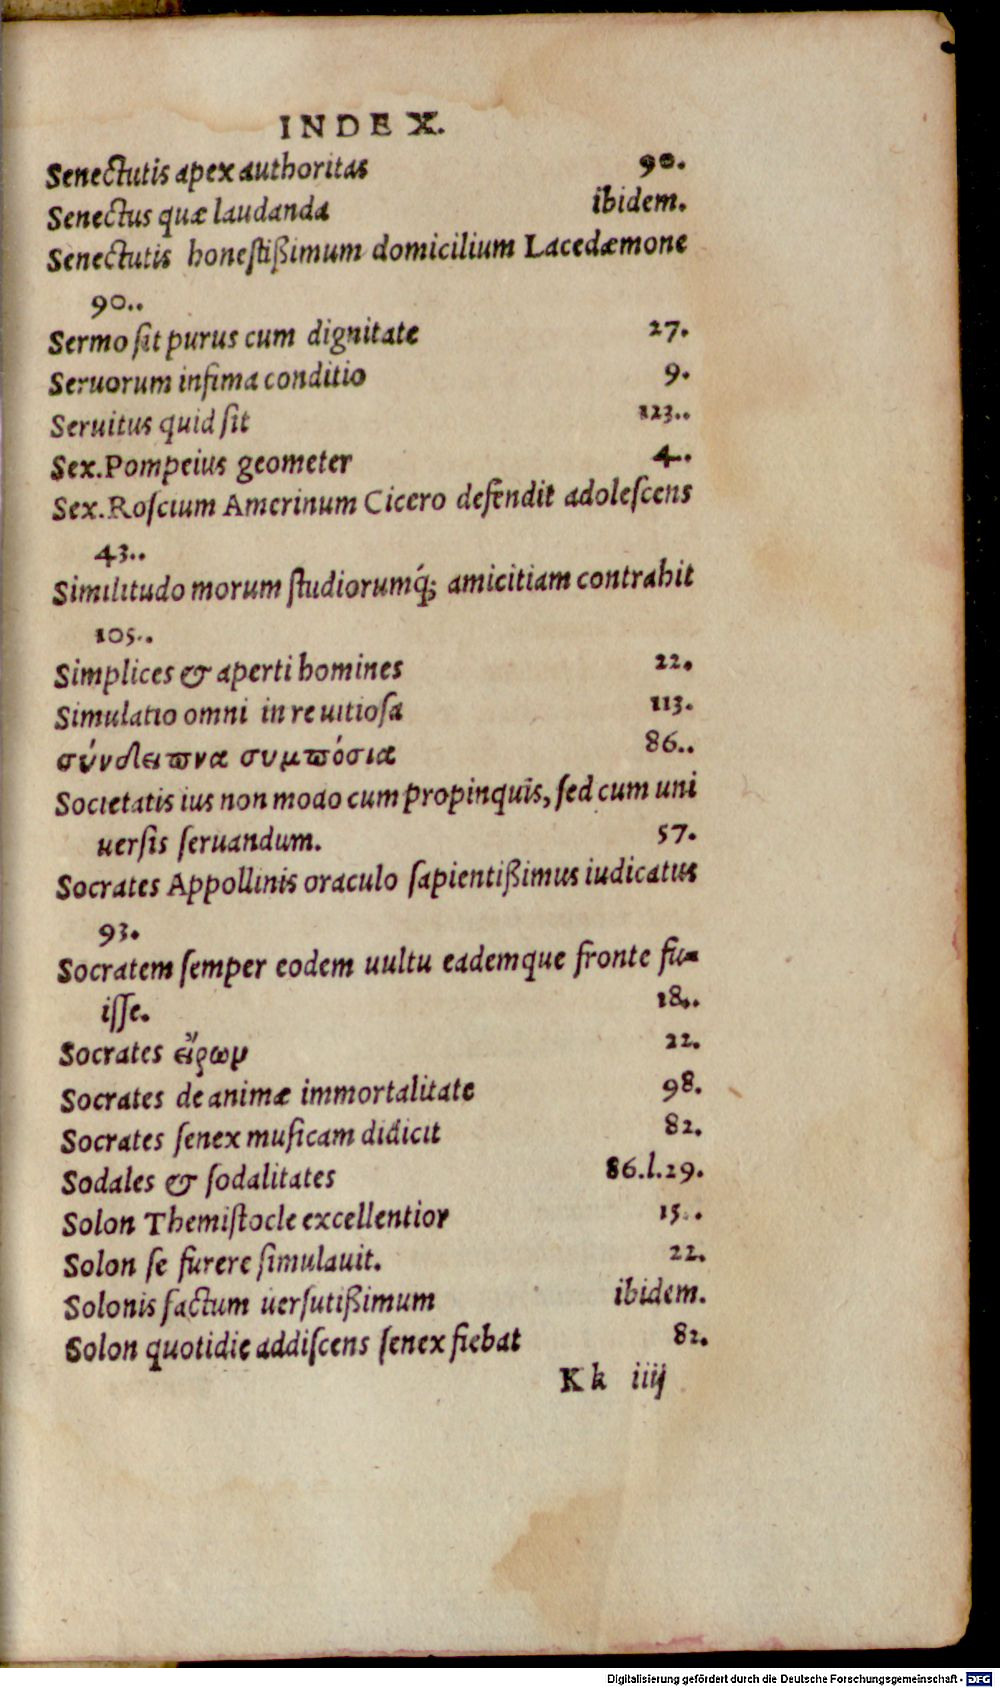 INDEX.
Senectutis apex authoritas 90.
Senectus quæ laudanda ibidem.
Senectutis honeſtißimum domicilium Lacedæmone
90..
Sermo ſit purus cum dignitate 27.
Seruorum infima conditio 9.
Seruitus quid ſit 123..
Sex.Pompeius geometer 4..
Sex.Roſcium Amerinum Cicero defendit adoleſcens
43..
Similitudo morum ſtudiorumq́; amicitiam contrahit
105..
Simplices & aperti homines 22.
Simulatio omni in re uitioſa 113.
σύνδειπνα συμπόσια 86..
Societatis ius non modo cum propinquis, ſed cum uni
uerſis ſeruandum. 57.
Socrates Appollinis oraculo ſapientißimus iudicatus
93.
Socratem ſemper eodem uultu eademque fronte fu-
iſſe. 18..
Socrates εἴρωμ 22.
Socrates de animæ immortalitate 98.
Socrates ſenex muſicam didicit 82.
Sodales & ſodalitates 86.l.29.
Solon Themiſtocle excellentior 15..
Solon ſe furere ſimulauit. 22.
Solonis factum uerſutißimum ibidem.
Solon quotidie addiſcens ſenex fiebat 82.
Kk iiij
Digitalisierung gefördert durch die Deutsche Forschungsgemeinschaft - DFG